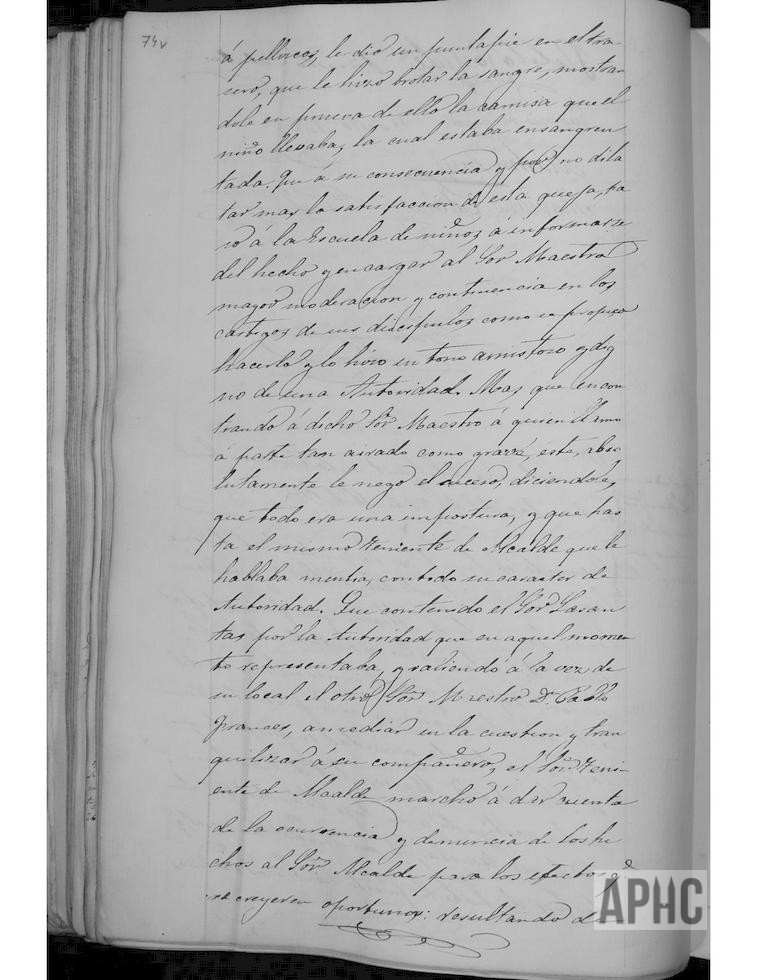 74v
á pellizcos, le dió un puntapie en el tra
sero, que le hizo brotar la sangre, mostran
dole en prueva de ello la camisa que el
niño llevaba, la cual estaba ensangren
tada. Que á su consecuencia y por no dila
tar mas la satisfaccion de esta queja, pa
só á la Escuela de niños, á informarse
del hecho y encargar al Sor Maestro
mayor moderacion y continencia en los
castigos de sus discipulos, como se propuso
hacerlo y lo hizo en tono amistoso y dig
no de una Autoridad. Mas que encon
trando á dicho Sor Maestro á quien llamó
á parte tan airado como grave, este, abso
lutamente le negó el suceso, diciendole,
que todo era una impostura, y que has
ta el mismo Teniente de Alcalde que le
hablaba mentia, con todo su caracter de
Autoridad. Que contenido el Sor Lasan
tas por la Autoridad que en aquel momen
to representaba, y saliendo á la vez de
su local el otro Sor Maestro Dn Pablo
Frances, a mediar en la cuestion y tran
quilizar á su compañero, el Sor Teni
ente de Alcalde marchó á dar cuenta
de la ocurrencia y denuncia de los he
chos al Sor Alcalde para los efectos q̃
se creyeren oportunos: resultando d
APHC